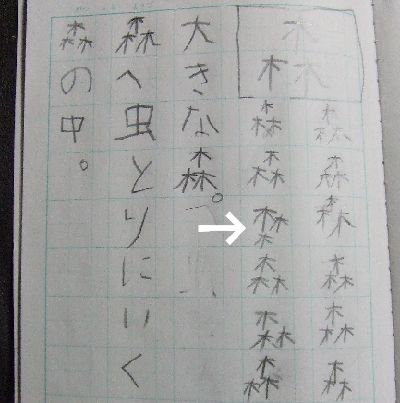 森
森森森森森森
森森森森森森
大きな森。
森へ虫とりにいく
森の中。